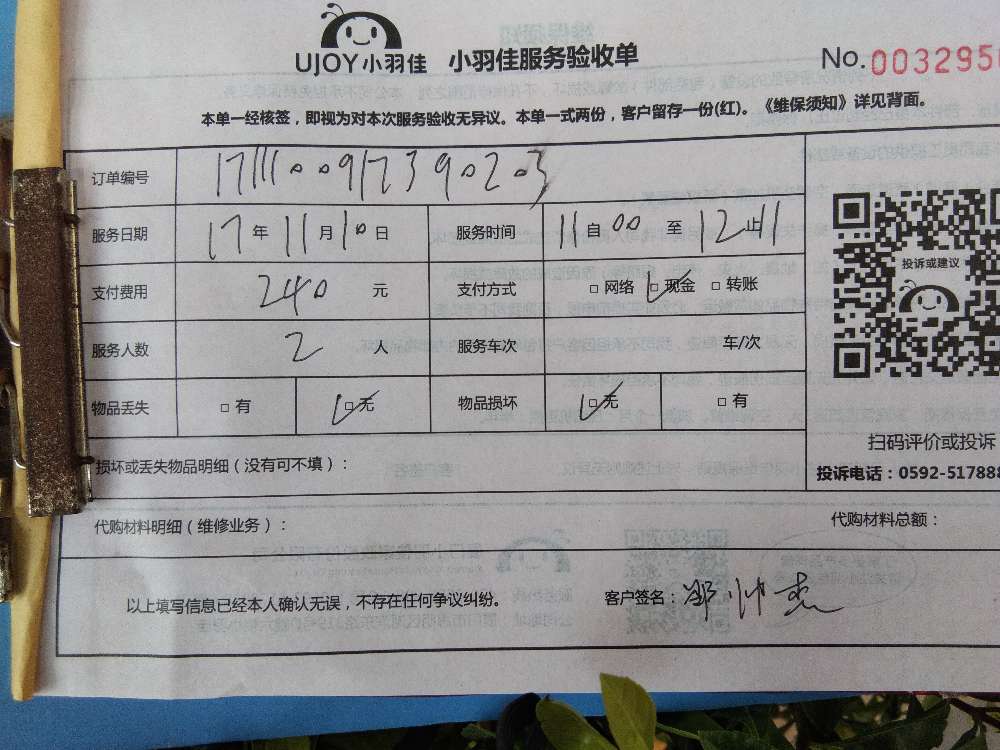 UJOY小羽佳 小羽佳服务验收单 No.0032950
本单一经核签，即视为对本次服务验收无异议。本单一式两份，客户留存一份(红)。《维保须知》详见背面。
订单编号 1711100917390203
服务日期 17年11月10日 服务时间 11自00至12止11
支付费用 240元 支付方式 □网络 □现金 □转账
服务人数 2人 服务车次 车/次
物品丢失 □有 □无 物品损坏 □无 □有
投诉或建议
扫码评价或投诉
损坏或丢失物品明细（没有可不填）：
投诉电话：0592-517888
代购材料明细（维修业务）： 代购材料总额：
以上填写信息已经本人确认无误，不存在任何争议纠纷。 客户签名：